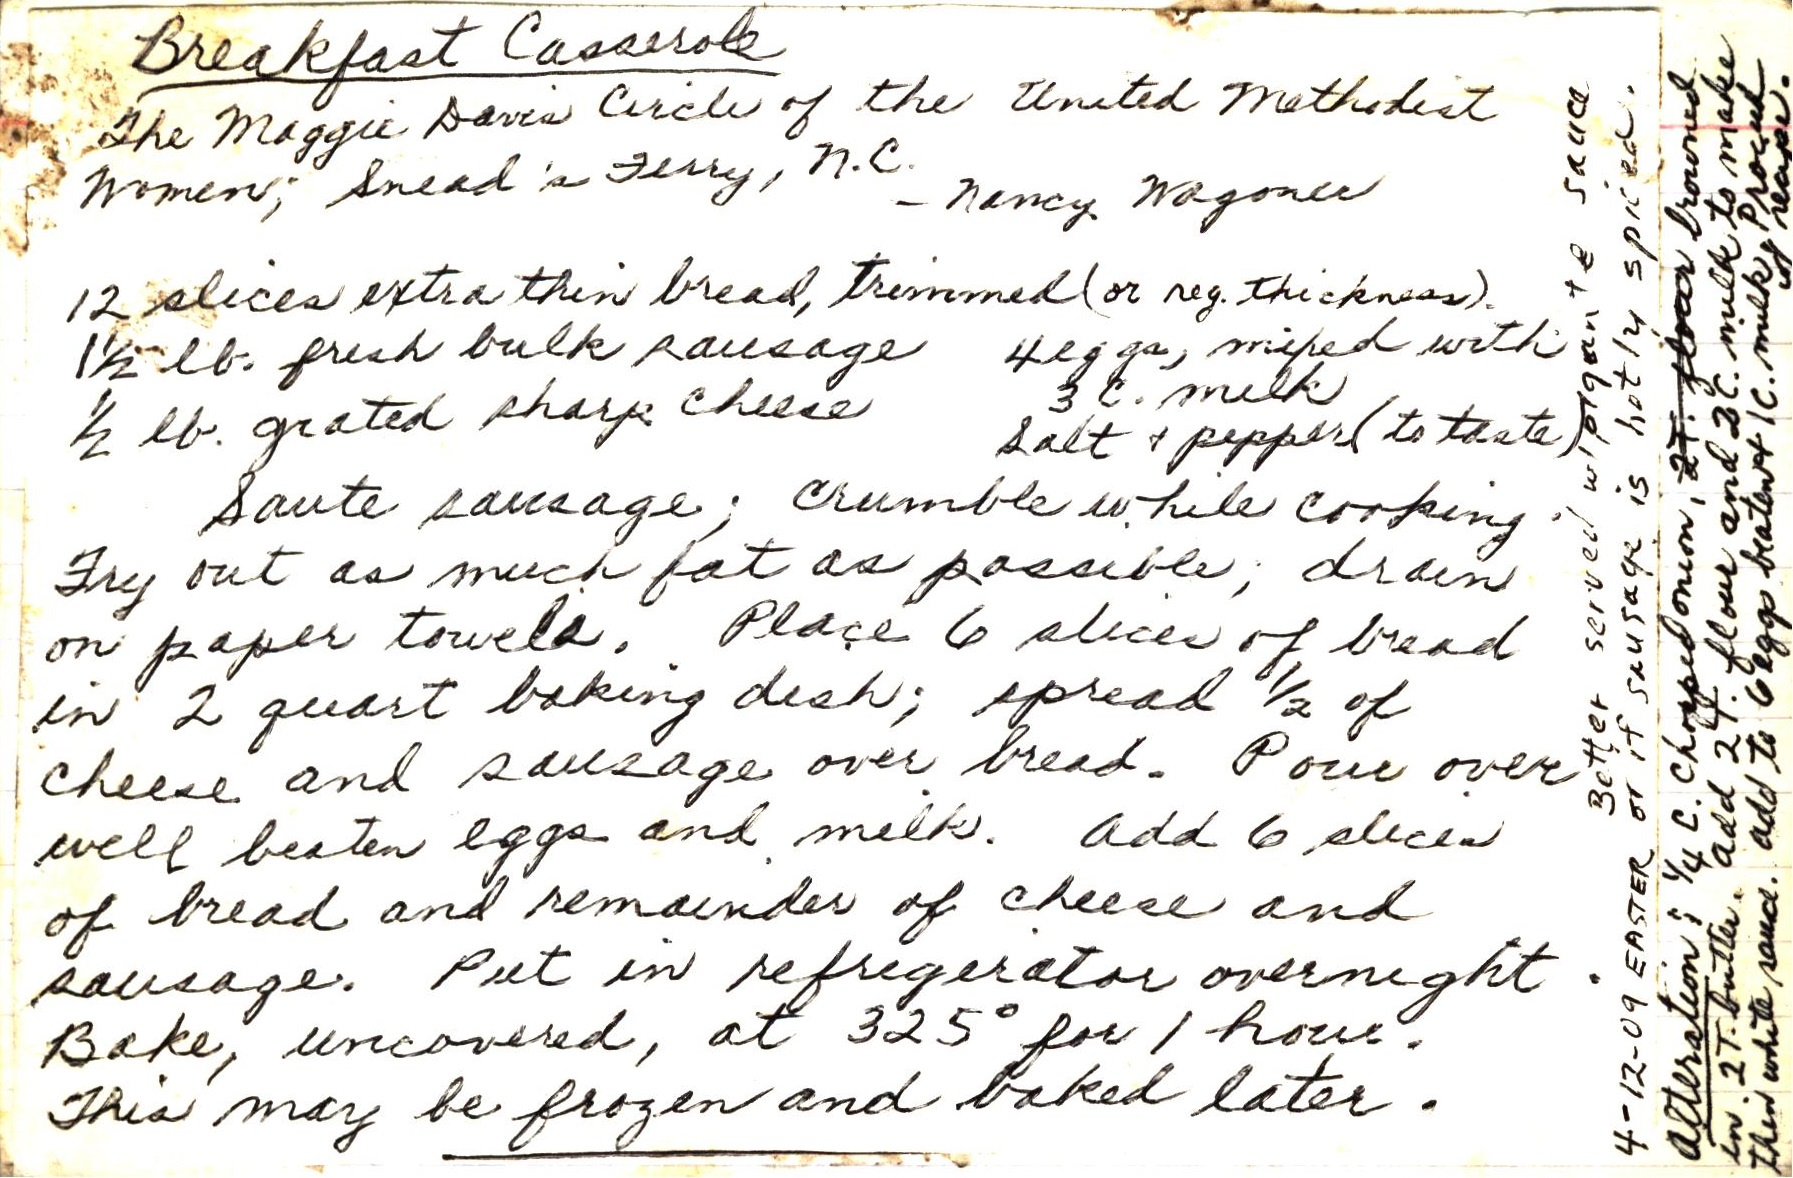 Breakfast Casserole
The Maggie Davis Circle of the United Methodist
Women; Snead's Ferry, N.C.
- Nancy Wagoner
12 slices extra thin bread, trimmed (or reg. thickness).
1½ lb. fresh bulk sausage
½ lb. grated sharp cheese
4 eggs, mixed with
3 C. milk
Salt + pepper (to taste)
Saute sausage; crumble while cooking.
Fry out as much fat as possible; drain
on paper towels. Place 6 slices of bread
in 2 quart baking dish; spread ½ of
cheese and sausage over bread. Pour over
well beaten eggs and milk. Add 6 slices
of bread and remainder of cheese and
sausage. Put in refrigerator overnight.
Bake, uncovered, at 325° for 1 hour.
This may be frozen and baked later.
Better served w/ sauce
4-12-09 EASTER or if sausage is hotly spiced.
Alteration: ¼ C. chopped onion, 2T. flour browned
in 2T. butter. Add 2T. flour and 2C. milk to make
thin white sauce. Add to 6 eggs beaten + 1C. milk. Proceed
w/ recipe.